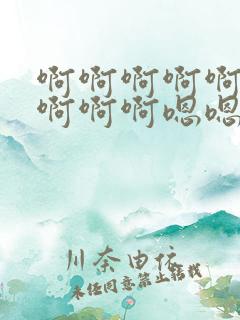 啊啊啊啊啊
啊啊啊嗯嗯
川奈由依
未经同意禁止转载